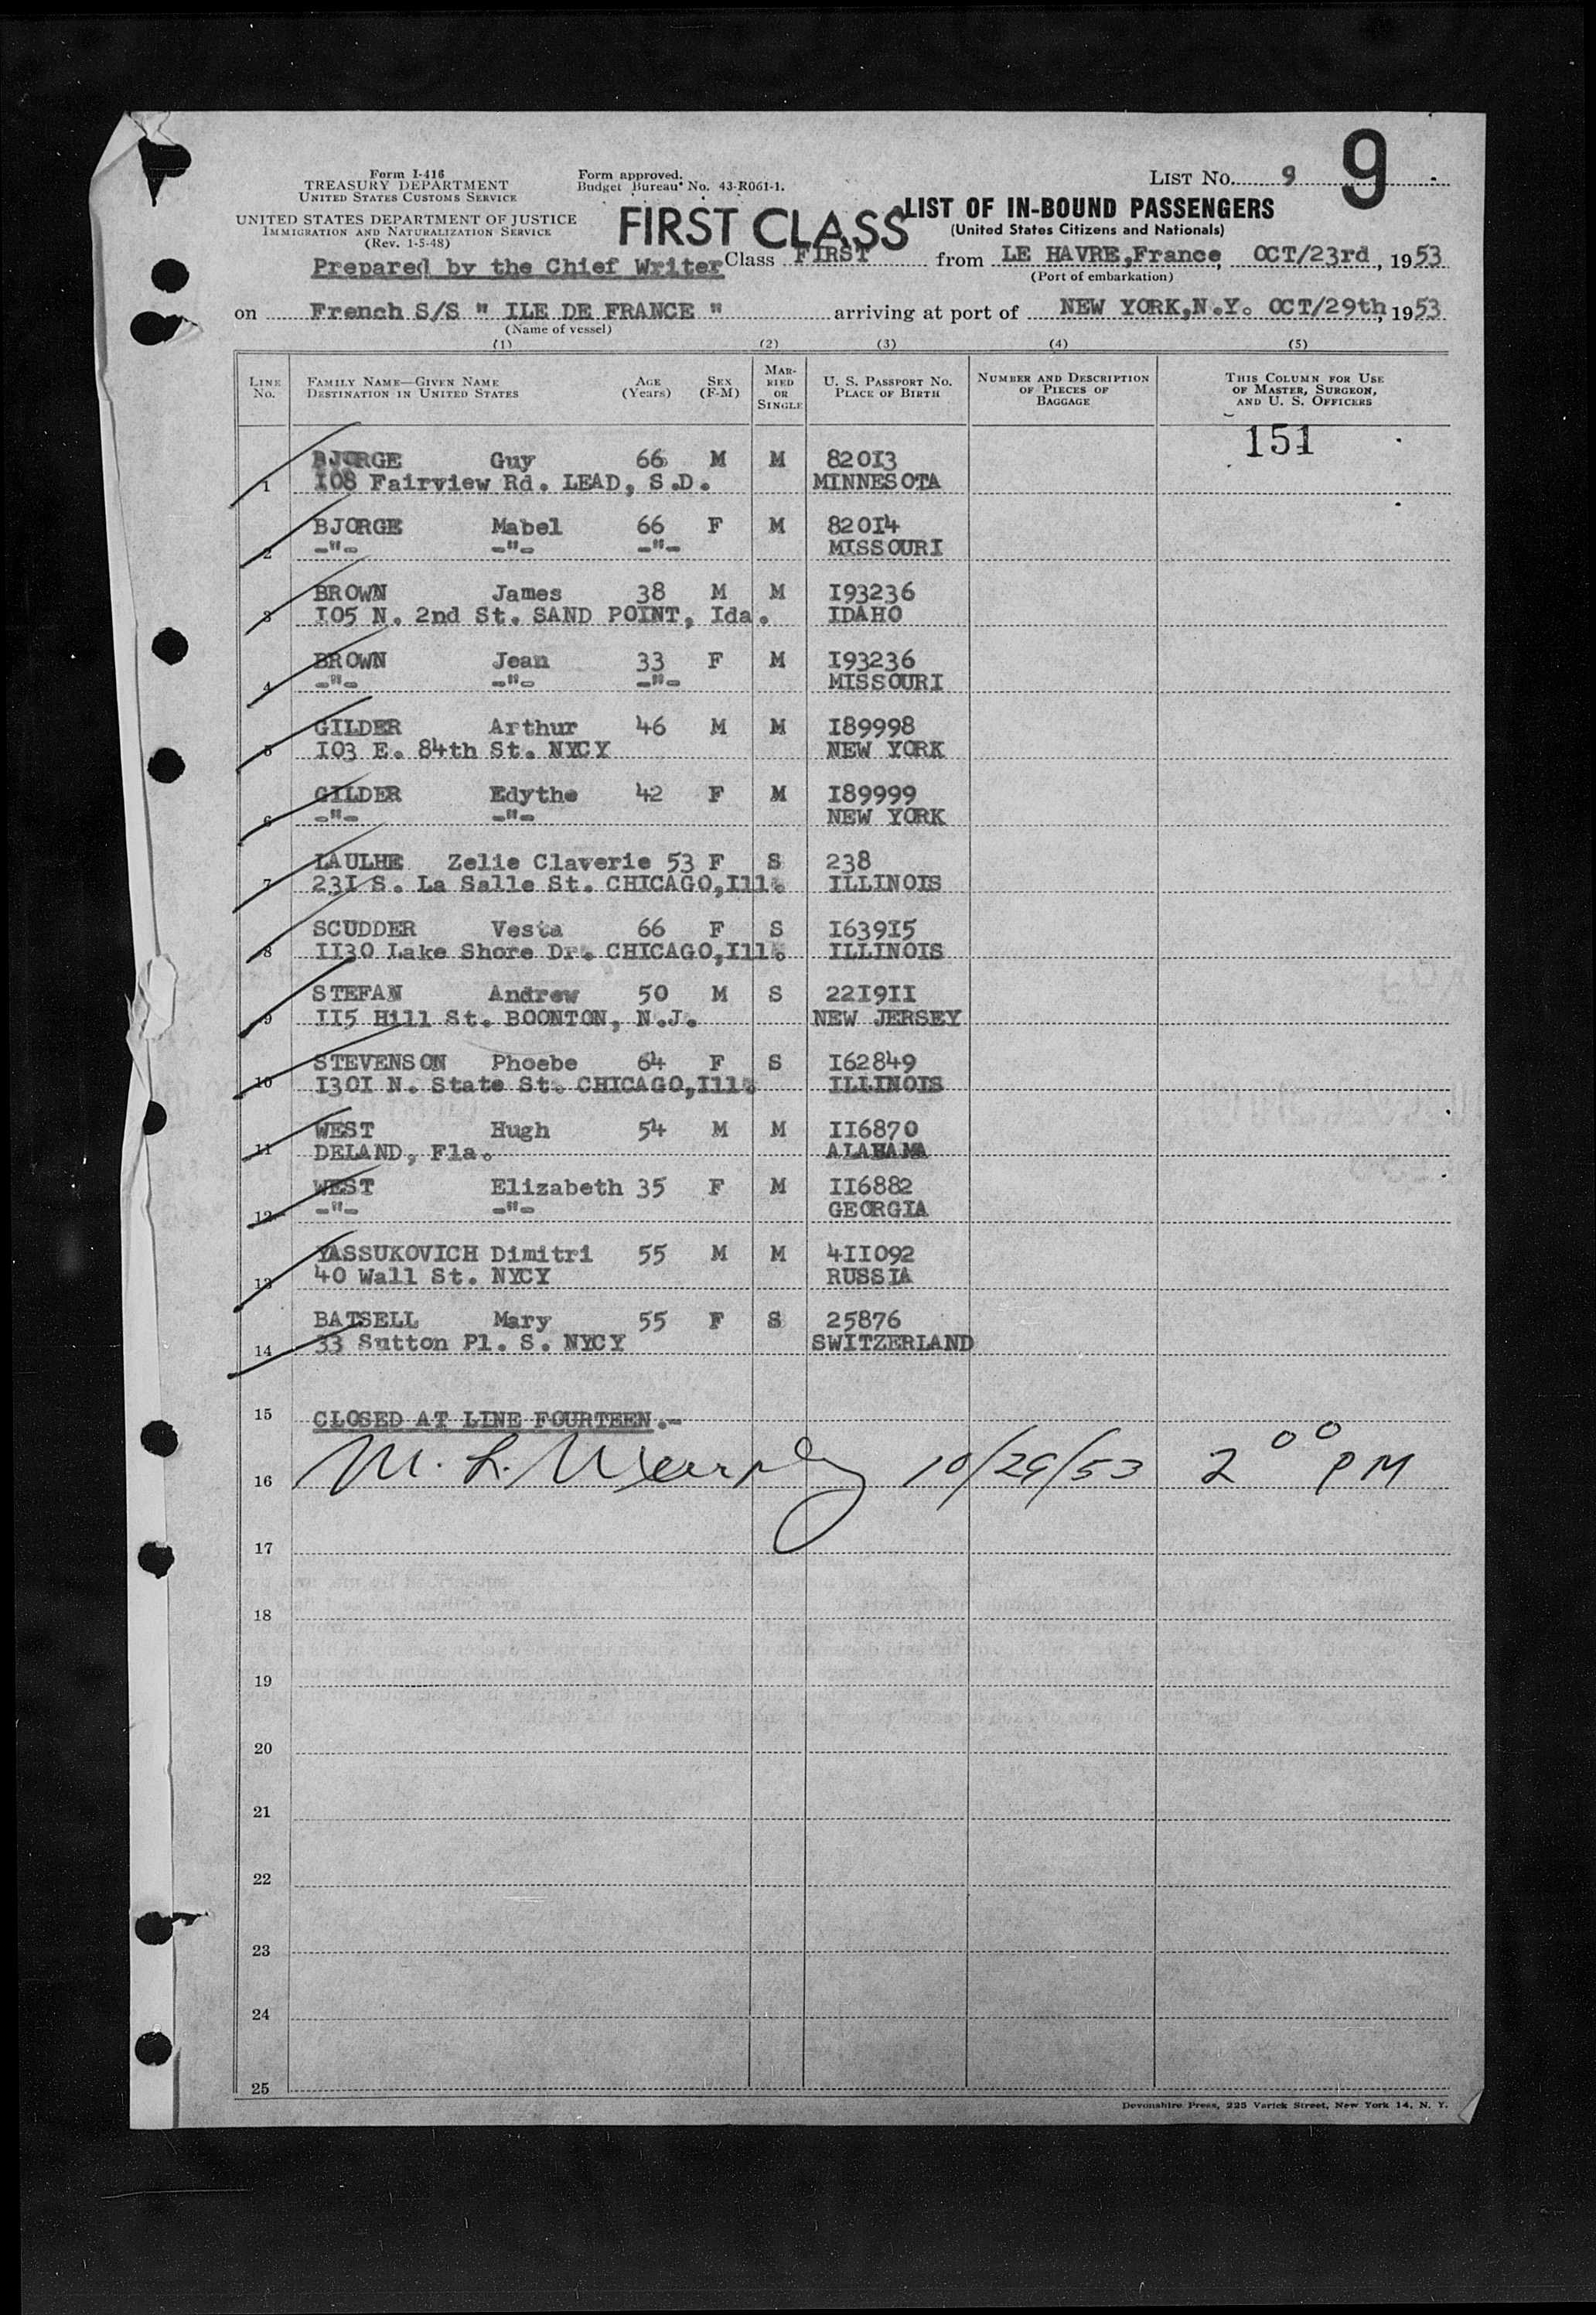 9
Form I-416
TREASURY DEPARTMENT
UNITED STATES CUSTOMS SERVICE
UNITED STATES DEPARTMENT OF JUSTICE
IMMIGRATION AND NATURALIZATION SERVICE
(Rev. 1-5-48)
Form approved.
Budget Bureau No. 43-R061-1.
LIST NO. 9
FIRST CLASS
LIST OF IN-BOUND PASSENGERS
(United States Citizens and Nationals)
Prepared by the Chief Writer Class FIRST from LE HAVRE,France, OCT/23rd, 1953
(Port of embarkation)
on French S/S " ILE DE FRANCE " arriving at port of NEW YORK,N.Y. OCT/29th, 1953
(Name of vessel)
(1) (2) (3) (4) (5)
LINE No.
FAMILY NAME—GIVEN NAME
DESTINATION IN UNITED STATES
AGE (Years)
SEX (F-M)
MARRIED OR SINGLE
U. S. PASSPORT NO.
PLACE OF BIRTH
NUMBER AND DESCRIPTION OF PIECES OF BAGGAGE
THIS COLUMN FOR USE OF MASTER, SURGEON, AND U. S. OFFICERS
151
BJORGE Guy 66 M M 82013
1 108 Fairview Rd. LEAD, S.D. MINNESOTA
BJORGE Mabel 66 F M 82014
2 -"- -"- -"- MISSOURI
BROWN James 38 M M I93236
3 I05 N. 2nd St. SAND POINT, Ida. IDAHO
BROWN Jean 33 F M I93236
4 -"- -"- -"- MISSOURI
GILDER Arthur 46 M M I89998
5 I03 E. 84th St. NYCY NEW YORK
GILDER Edythe 42 F M I89999
6 -"- -"- NEW YORK
LAULHE Zelie Claverie 53 F S 238
7 23I S. La Salle St. CHICAGO,Ill. ILLINOIS
SCUDDER Vesta 66 F S I639I5
8 II30 Lake Shore Dr. CHICAGO,Ill. ILLINOIS
STEFAN Andrew 50 M S 22I9II
9 II5 Hill St. BOONTON, N.J. NEW JERSEY
STEVENSON Phoebe 64 F S I62849
10 I30I N. State St. CHICAGO,Ill. ILLINOIS
WEST Hugh 54 M M II6870
11 DELAND, Fla. ALABAMA
WEST Elizabeth 35 F M II6882
12 -"- -"- GEORGIA
YASSUKOVICH Dimitri 55 M M 4II092
13 40 Wall St. NYCY RUSSIA
BATSELL Mary 55 F S 25876
14 33 Sutton Pl. S. NYCY SWITZERLAND
15 CLOSED AT LINE FOURTEEN.-
16 M. L. Murphy 10/29/53 2 00 PM
17
18
19
20
21
22
23
24
25
Devonshire Press, 225 Varick Street, New York 14, N. Y.